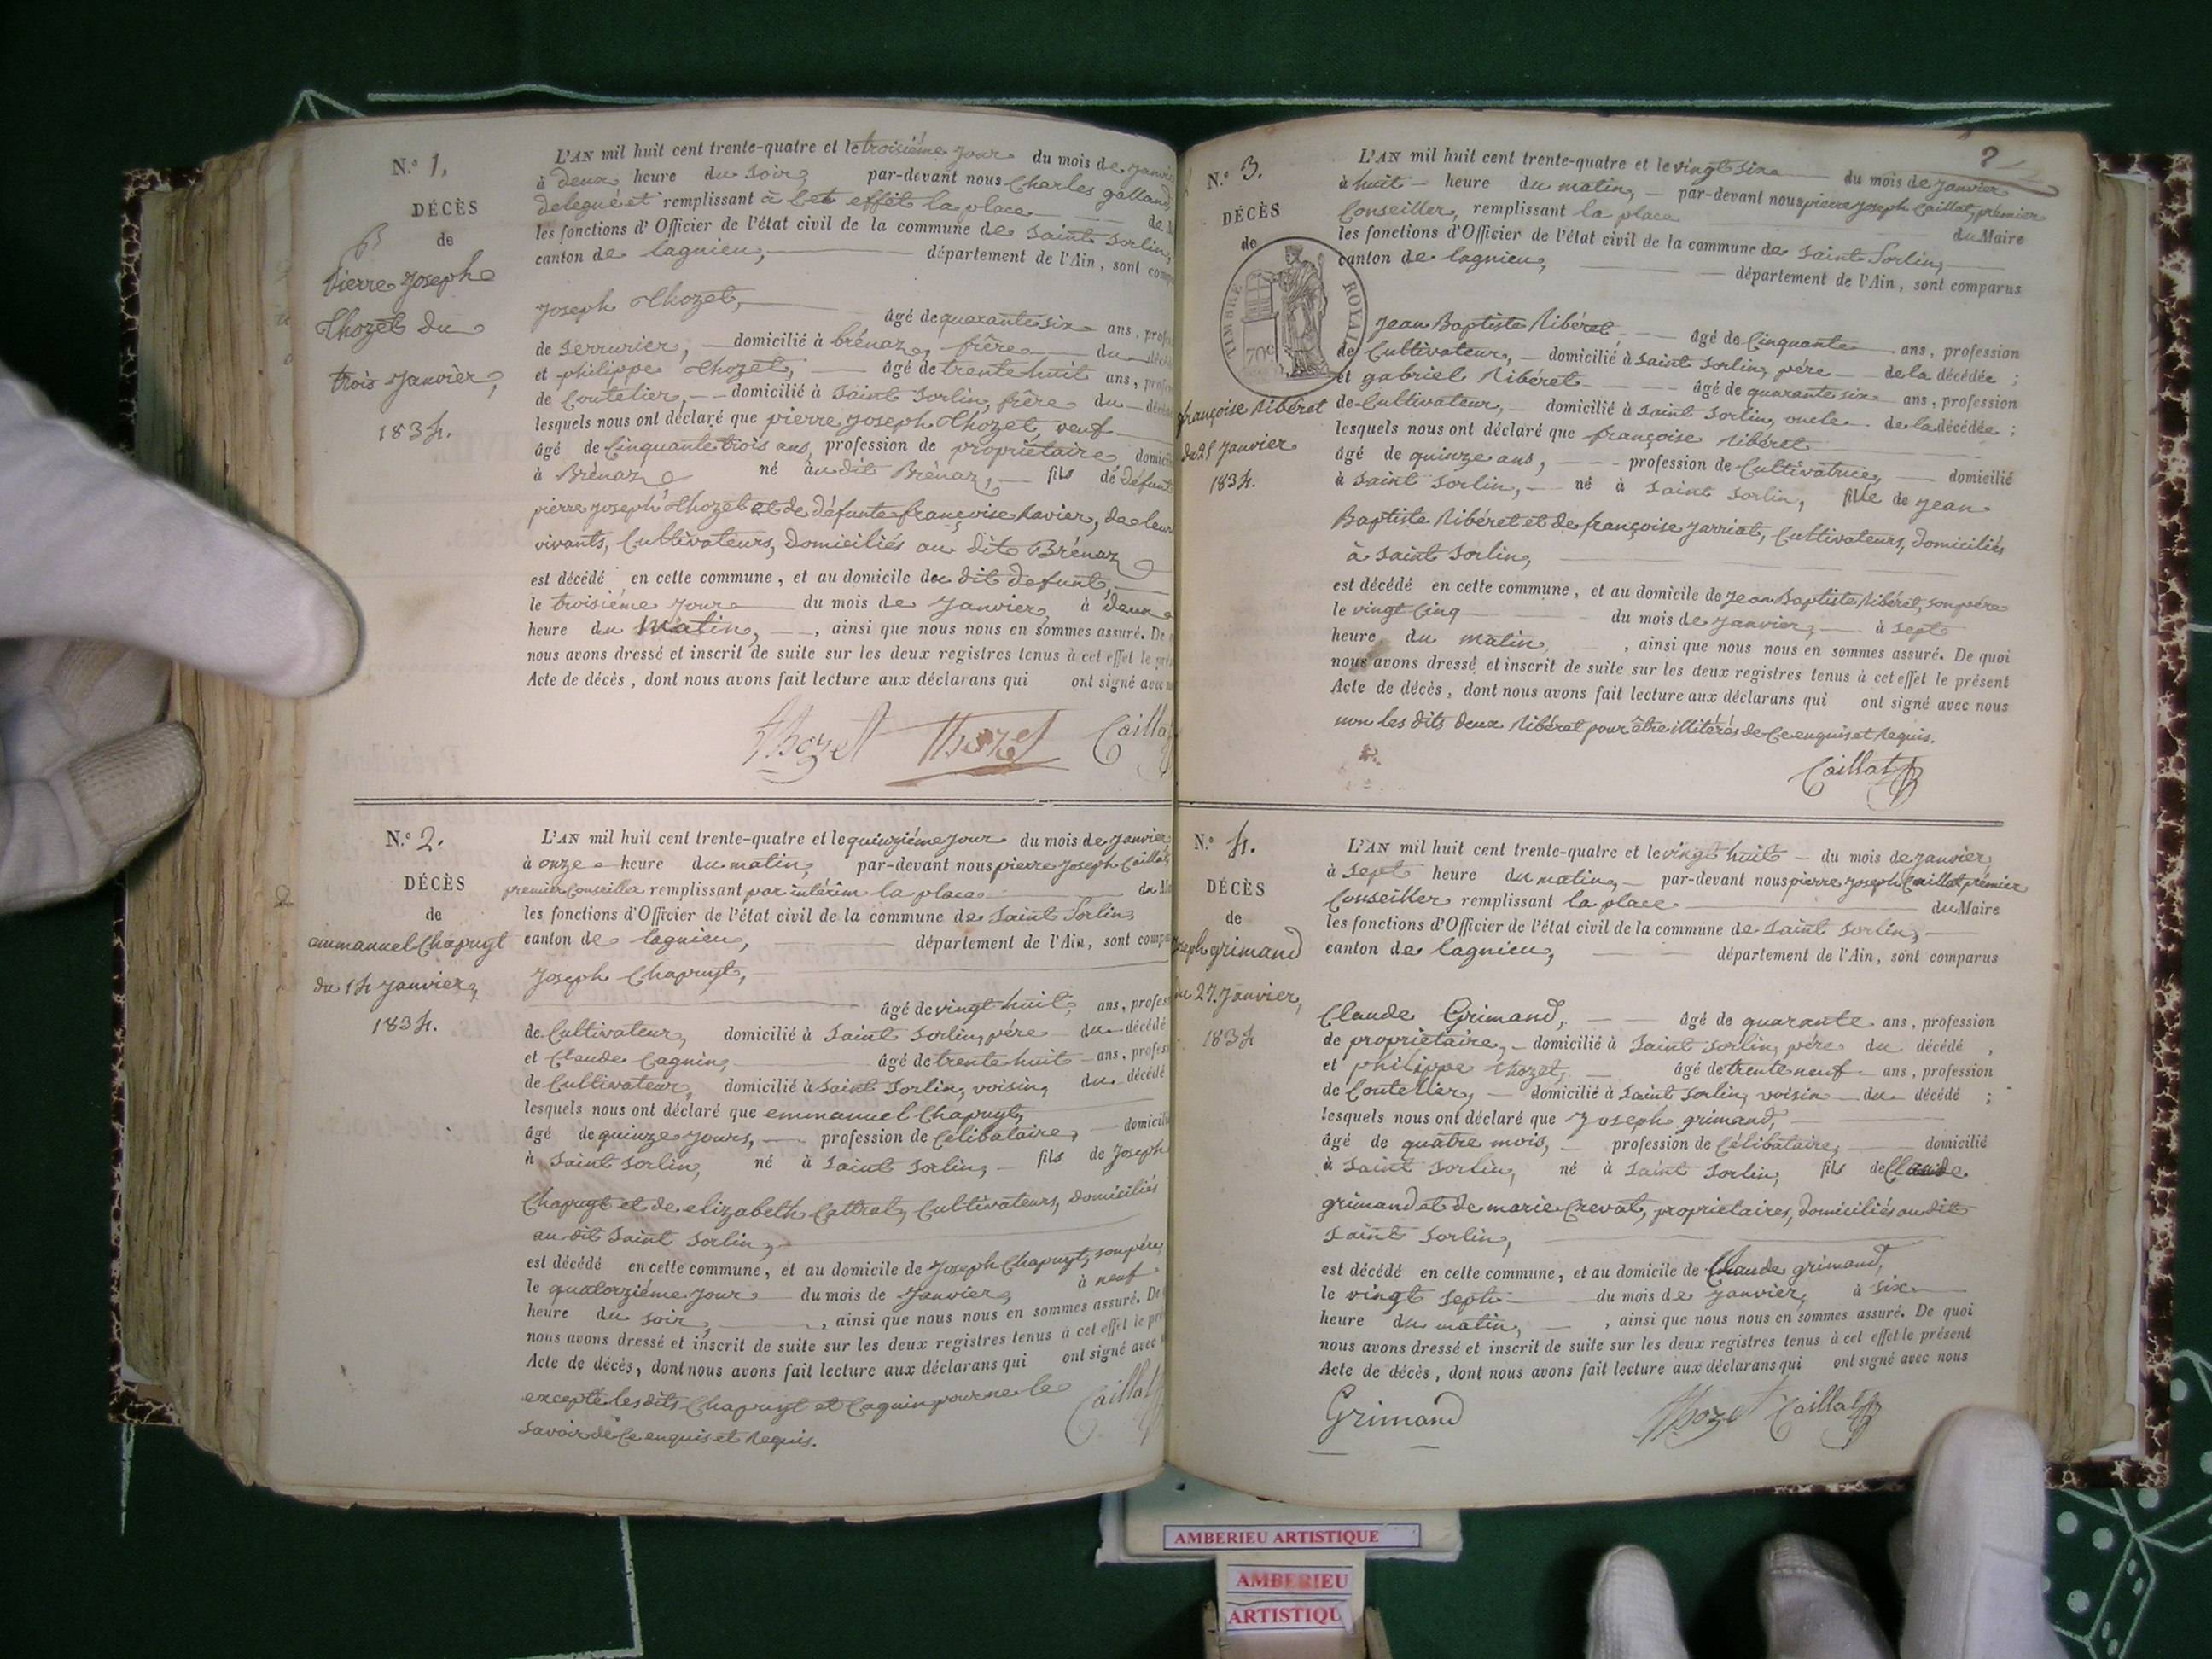 N.º 1.
DÉCÈS
de
Pierre Joseph
Thozet du
trois janvier,
1834.
L'AN mil huit cent trente-quatre et le troisiéme jour du mois de janvier
à deux heure du soir, par-devant nous Charles galland
delegué et remplissant à cet effét la place
les fonctions d'Officier de l'état civil de la commune de Saint Sorlin,
canton de lagnieu, département de l'Ain, sont comp
Joseph Thozet,
âgé de quarante six ans, prof
de Serrurier, domicilié à brénaz, frère du
et philippe Thozet, âgé de trente huit ans,
de Coutelier, domicilié à Saint Sorlin, frère du
lesquels nous ont déclaré que pierre joseph Thozet, veuf
âgé de Cinquante trois ans, profession de propriétaire domici
à Brénaz né au dit Brénaz, fils de défunt
pierre joseph Thozet et de défunte françoise Ravier, de leur
vivants, Cultivateurs, domiciliés au dit Brénaz
est décédé en cette commune, et au domicile du dit defunt,
le troisiéme jour du mois de janvier, à deux
heure du Matin, , ainsi que nous nous en sommes assuré. De
nous avons dressé et inscrit de suite sur les deux registres tenus à cet effet le
Acte de décès, dont nous avons fait lecture aux déclarans qui ont signé avec
Thozet Thozet Caillat
N.º 2.
DÉCÈS
de
emmanuel Chapuyt
du 14 janvier,
1834.
L'AN mil huit cent trente-quatre et le quinziéme jour du mois de janvier
à onze heure du matin, par-devant nous pierre joseph Caillat,
premier Conseiller remplissant par intérim la place du
les fonctions d'Officier de l'état civil de la commune de Saint Sorlin
canton de lagnieu, département de l'Ain, sont compa
Joseph Chapuyt,
âgé de vingt huit, ans, profes
de Cultivateur, domicilié à Saint Sorlin, père du décédé
et Claude Cagnin, âgé de trente huit ans, profes
de Cultivateur, domicilié à Saint Sorlin, voisin, du décédé
lesquels nous ont déclaré que emmanuel Chapuyt,
âgé de quinze jours, profession de Célibataire, domicili
à Saint Sorlin, né à Saint Sorlin, fils de Joseph
Chapuyt et de elizabeth Cottrat, Cultivateurs, domiciliés
au dit Saint Sorlin,
est décédé en cette commune, et au domicile de Joseph Chapuyt, son père,
le quatorziéme jour du mois de janvier, à neuf
heure du soir, , ainsi que nous nous en sommes assuré. De
nous avons dressé et inscrit de suite sur les deux registres tenus à cet effet le
Acte de décès, dont nous avons fait lecture aux déclarans qui ont signé avec
excepté les dits Chapuyt et Cagnin pour ne le
savoir de Ce enquis et Requis.
Caillat
2
N.º 3.
DÉCÈS
de
TIMBRE ROYAL
70c
françoise Ribéret
du 25 janvier
1834.
L'AN mil huit cent trente-quatre et le vingt six du mois de janvier
à huit heure du matin, par-devant nous pierre joseph Caillat, prémier
Conseiller, remplissant la place du Maire
les fonctions d'Officier de l'état civil de la commune de Saint Sorlin,
canton de lagnieu, département de l'Ain, sont comparus
Jean Baptiste Ribéret, âgé de Cinquante ans, profession
de Cultivateur, domicilié à Saint Sorlin, père de la décédée ;
et gabriel Ribéret âgé de quarante six ans, profession
de Cultivateur, domicilié à Saint Sorlin, oncle de la décédée ;
lesquels nous ont déclaré que françoise Ribéret
âgé de quinze ans, profession de Cultivatrice, domicilié
à Saint Sorlin, né à Saint Sorlin, fille de Jean
Baptiste Ribéret et de françoise Jarriat, Cultivateurs, domiciliés
à Saint Sorlin,
est décédé en cette commune, et au domicile de Jean Baptiste Ribéret, son père
le vingt Cinq du mois de janvier, à sept
heure du matin, , ainsi que nous nous en sommes assuré. De quoi
nous avons dressé et inscrit de suite sur les deux registres tenus à cet effet le présent
Acte de décès, dont nous avons fait lecture aux déclarans qui ont signé avec nous
non les dits deux Ribéret pour être illitérés de Ce enquis et Requis.
Caillat
N.º 4.
DÉCÈS
de
Joseph grimand
du 27 janvier,
1834
L'AN mil huit cent trente-quatre et le vingt huit du mois de janvier,
à sept heure du matin, par-devant nous pierre joseph Caillat prémier
Conseiller remplissant la place du Maire
les fonctions d'Officier de l'état civil de la commune de Saint Sorlin,
canton de lagnieu, département de l'Ain, sont comparus
Claude Grimand, âgé de quarante ans, profession
de propriétaire, domicilié à Saint Sorlin, père du décédé ,
et philippe Thozet, âgé de trente neuf ans, profession
de Coutelier, domicilié à Saint Sorlin, voisin du décédé ;
lesquels nous ont déclaré que Joseph grimand,
âgé de quatre mois, profession de Célibataire, domicilié
à Saint Sorlin, né à Saint Sorlin, fils de Claude
grimand et de marie Crevat, propriétaires, domiciliés au dit
Saint Sorlin,
est décédé en cette commune, et au domicile de Claude grimand,
le vingt sept du mois de janvier, à six
heure du matin, , ainsi que nous nous en sommes assuré. De quoi
nous avons dressé et inscrit de suite sur les deux registres tenus à cet effet le présent
Acte de décès, dont nous avons fait lecture aux déclarans qui ont signé avec nous
Grimand Thozet Caillat
AMBERIEU ARTISTIQUE
AMBERIEU
ARTISTIQU